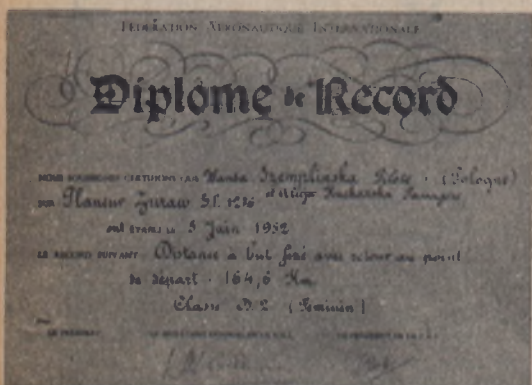 FÉDÉRATION AÉRONAUTIQUE INTERNATIONALE
Diplôme de Record
NOUS SOUSSIGNÉS CERTIFIONS QUE Wanda Szemplinska Pilote (Pologne)
SUR Planeur Żuraw S.P. 1236 et Kucharska Passagère
ONT ÉTABLI LE 5 Juin 1952
LE RECORD SUIVANT Distance à but fixé avec retour au point
de départ - 164,6 Km
Classe D/2 (Féminin)
LE PRÉSIDENT